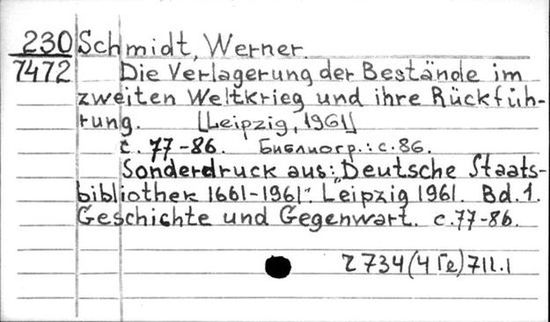 230 Schmidt, Werner.
7472 Die Verlagerung der Bestände im
zweiten Weltkrieg und ihre Rückfüh-
rung. [Leipzig, 1961]
с. 77-86. Библиогр.: с. 86.
Sonderdruck aus: „Deutsche Staats-
bibliothek 1661-1961". Leipzig 1961. Bd. 1.
Geschichte und Gegenwart. с. 77-86.
Z 734(4 Ге)711.1